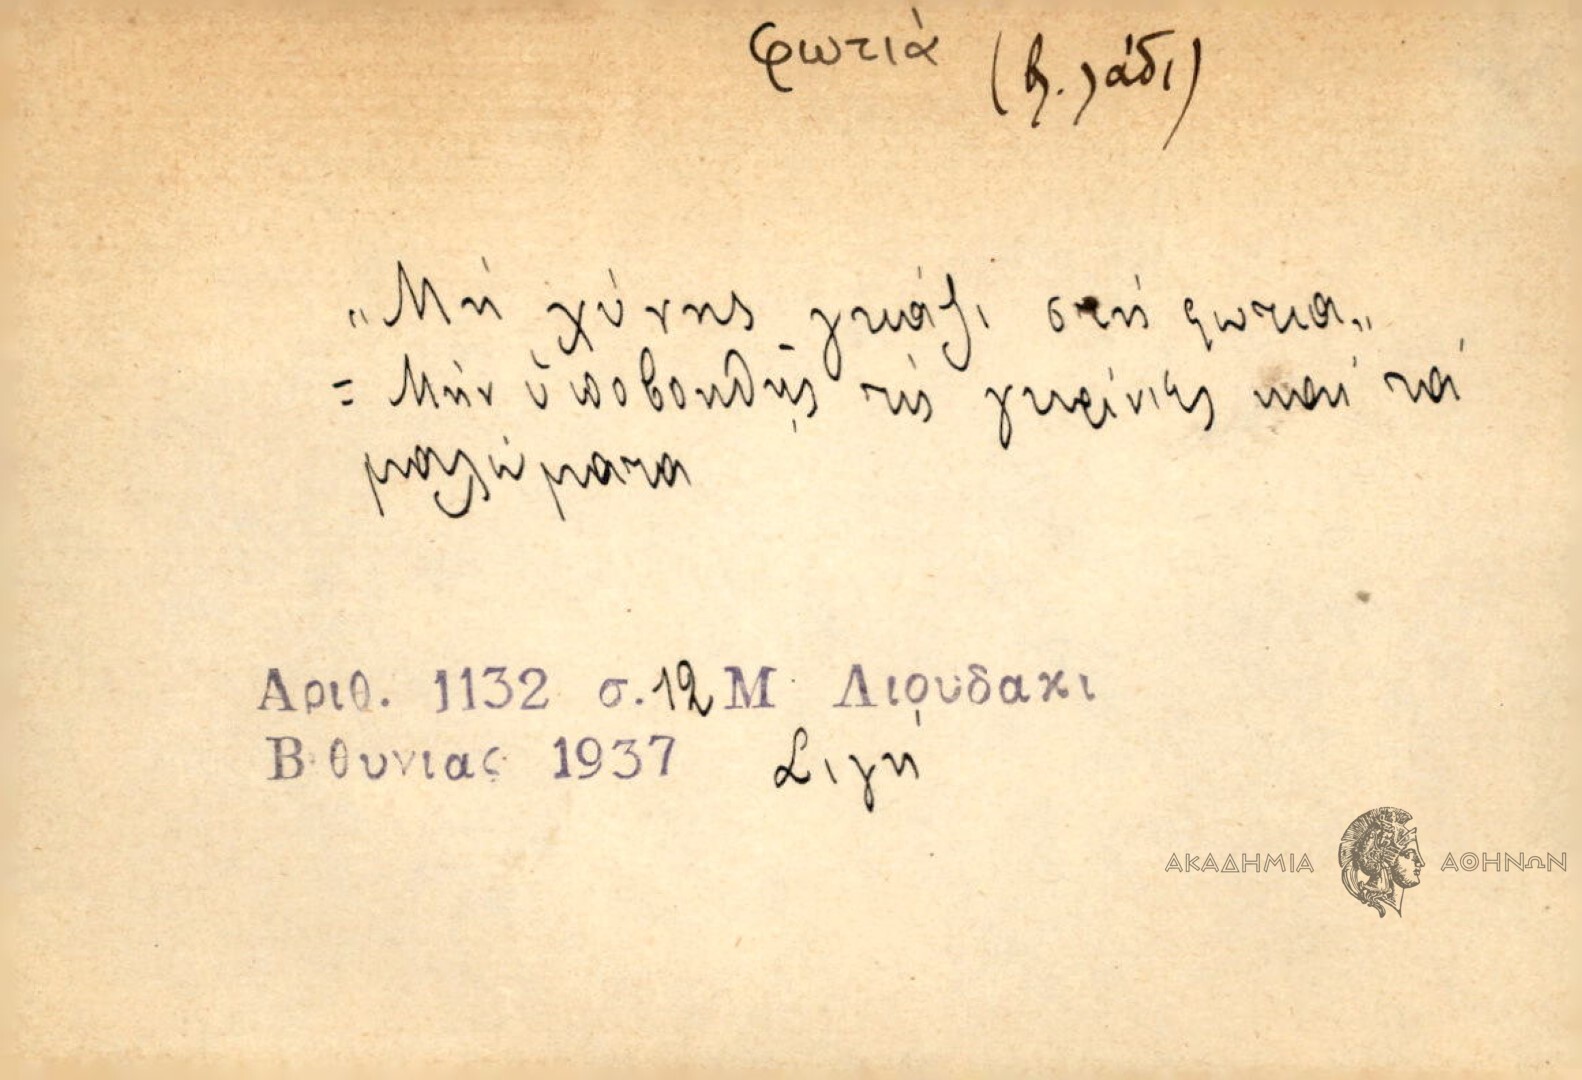 φωτιά (βλ. λάδι)
„Μή χύνης γκάζι στή φωτια„
= Μήν ὑποβοηθῇς τίς γκρίνιες καί τά
μαλώματα
Αριθ. 1132 σ. 12 Μ Λιουδακι
Βιθυνιας 1937 Σιγή
ΑΚΑΔΗΜΙΑ ΑΘΗΝΩΝ